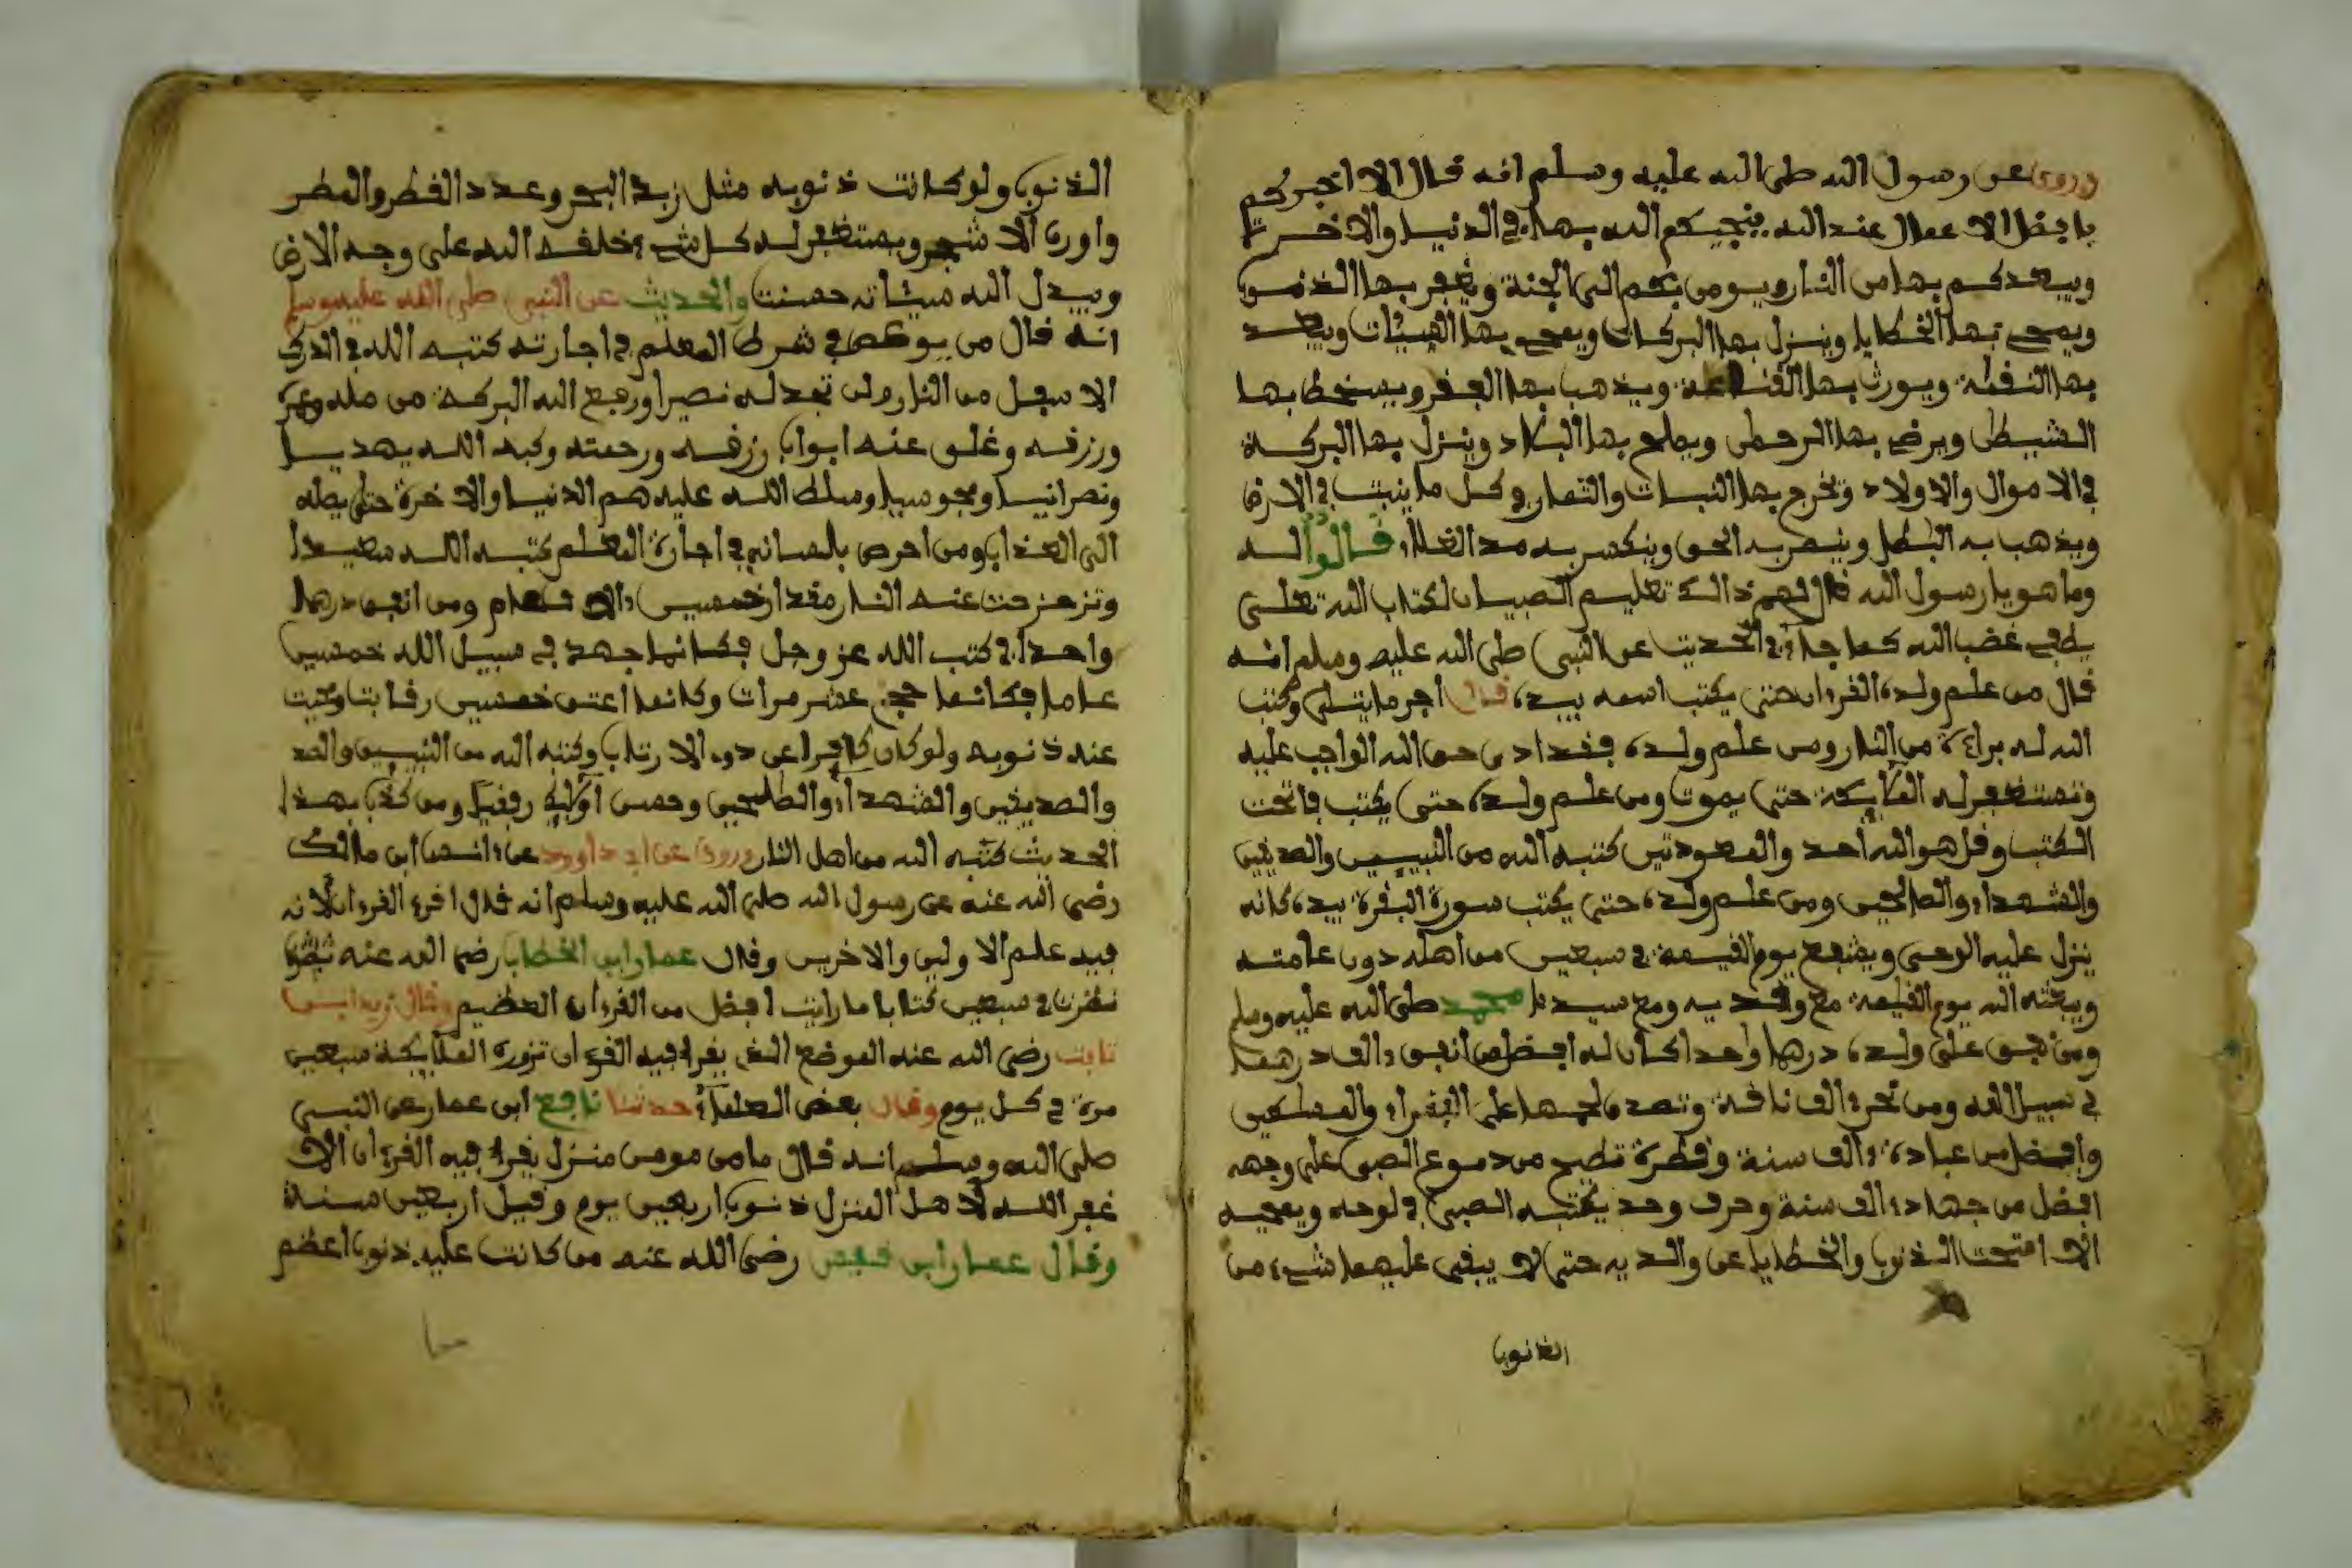 وروي عن رسول الله صلى الله عليه وسلم انه قال الا اخبركم
بافضل الاعمال عند الله ينجيكم الله بها في الدنيا والاخرة
ويبعدكم بها من النار ويومن بكم الى الجنة ويغفر بها الذنوب
ويمحي بها الخطايا وينزل بها البركات ويمحي بها السيئات ويبعد
بها النقمة ويورث بها القناعة ويذهب بها الفقر ويسخط بها
الشيطن ويرضي بها الرحمن ويصلح بها البلاد وينزل بها البركة
في الاموال والاولاد وتخرج بها النبات والثمار وكل ما ينبت في الارض
ويذهب به البطل وينصر به الحق وينكسر به قالوا له
وما هو يا رسول الله قال لهم ذالك تعليم الصبيان لكتاب الله تعلى
يطفي غضب الله كما جاء في الحديث عن النبي صلى الله عليه وسلم انه
قال من علم ولده القرءان حتى يكتب اسمه بيده قال اجر ما يتلى وكتب
الله له براءة من النار ومن علم ولده فقد ادى حق الله الواجب عليه
وتستغفر له الملايكة حتى يموت ومن علم ولده حتى يكتب فاتحت
الكتب وقل هو الله احد والمعوذتين كتبه الله من النبيين والصديقين
والشهداء والصالحين ومن علم ولده حتى يكتب سورة البقرة بيده كانه
ينزل عليه الوحي ويشفع يوم القيمة في سبعين من اهله دون عامته
ويبعثه الله يوم القيمة مع والديه ومع سيدنا محمد صلى الله عليه وسلم
ومن نفق على ولده درهما واحدا كان له افضل من انفق الف درهما
في سبيل الله ومن نحر الف ناقة وتصدق بلحمها على الفقراء والمسكين
وافضل من عبادة الف سنة وقطرة تصح من دموع الصبي على وجهه
افضل من جهاد الف سنة وحرف وحد يكتبه الصبي في لوحه ويمحيه
الا امتحت الذنوب والخطايا عن والديه حتى لا يبقى عليهما شيء من
الذنوب
الذنوب ولو كانت ذنوبه مثل زبد البحر وعدد القطر والمطر
واوراق الاشجر ويستغفر له كل شيء خلقه الله على وجه الارض
ويبدل الله سيئاته حسنت والحديث عن النبي صلى الله عليه وسلم
انه قال من في شرط المعلم في اجارته كتبه الله في الدرك
الاسفل من النار ولن تجد له نصيرا ورفع الله البركة من ماله وعمره
ورزقه وغلق عنه ابواب رزقه ورحمته وكبه الله يهديا
ونصرانيا ومجوسيا وسلط الله عليه هم الدنيا والاخرة حتى يصله
الى العذاب ومن احرص بلسانه في اجارة المعلم كتبه الله سعيدا
وتزحزحت عنه النار مقدار خمسين الاف عام ومن انفق درهما
واحدا في كتب الله عز وجل فكانما جهد في سبيل الله خمسين
عاما فكانما حج عشر مرات وكانما اعتق خمسين رقابت ومحيت
عنه ذنوبه ولو كان كافرا وكتبه الله من النبيين والصد
والصديقين والشهداء والصلحين وحسن اولايك رفيقا ومن كذب بهذا
الحديث كتبه الله من اهل النار وروي عن ابي داوود عن انس ابن مالك
رضي الله عنه عن رسول الله صلى الله عليه وسلم انه قال اقرء القرءان لانه
فيه علم الاولين والاخرين وقال عمار ابن الخطاب رضي الله عنه
نظرت في سبعين كتابا ما رايت افضل من القرءان العظيم وقال زيد ابن
ثابت رضي الله عنه الموضع الذي يقرا فيه القرءان تزوره الملايكة سبعين
مرة في كل يوم وقال بعض العلماء حدثنا نافع ابن عمار عن النبي
صلى الله وسلم انه قال ما من مومن منزل يقرا فيه القرءان الا
غفر الله لاهل المنزل ذنوب اربعين يوم وقيل اربعين سنة
وقال عمار ابن رضي الله عنه من كانت عليه ذنوب اعظم